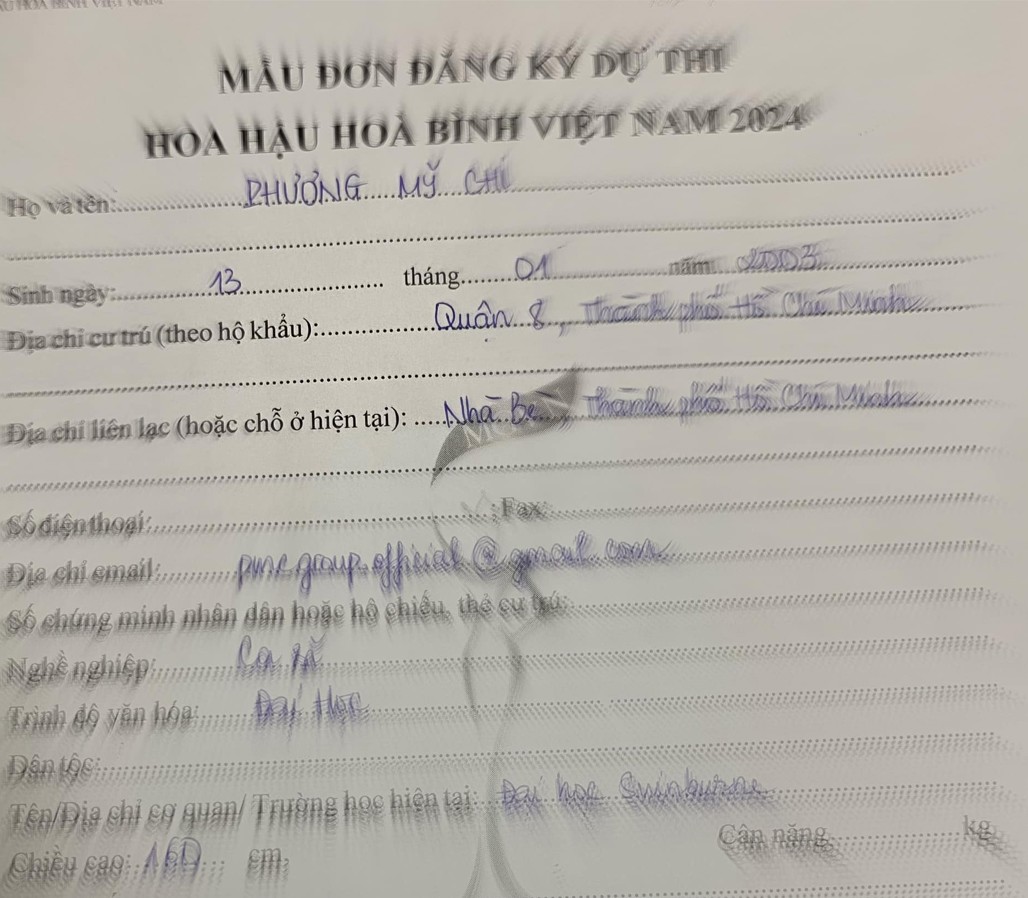 MẪU ĐƠN ĐĂNG KÝ DỰ THI
HOA HẬU HOÀ BÌNH VIỆT NAM 2024
Họ và tên: PHƯƠNG MỸ CHI
Sinh ngày: 13 tháng 01 năm 2003
Địa chỉ cư trú (theo hộ khẩu): Quận 8, Thành phố Hồ Chí Minh
Địa chỉ liên lạc (hoặc chỗ ở hiện tại): Nhà Bè, Thành phố Hồ Chí Minh
Số điện thoại: Fax:
Địa chỉ email: pmc.group.official@gmail.com
Số chứng minh nhân dân hoặc hộ chiếu, thẻ cư trú:
Nghề nghiệp: Ca sĩ
Trình độ văn hóa: Đại Học
Dân tộc:
Tên/Địa chỉ cơ quan/ Trường học hiện tại: Đại học Swinburne
Chiều cao: 160 cm, Cân nặng kg